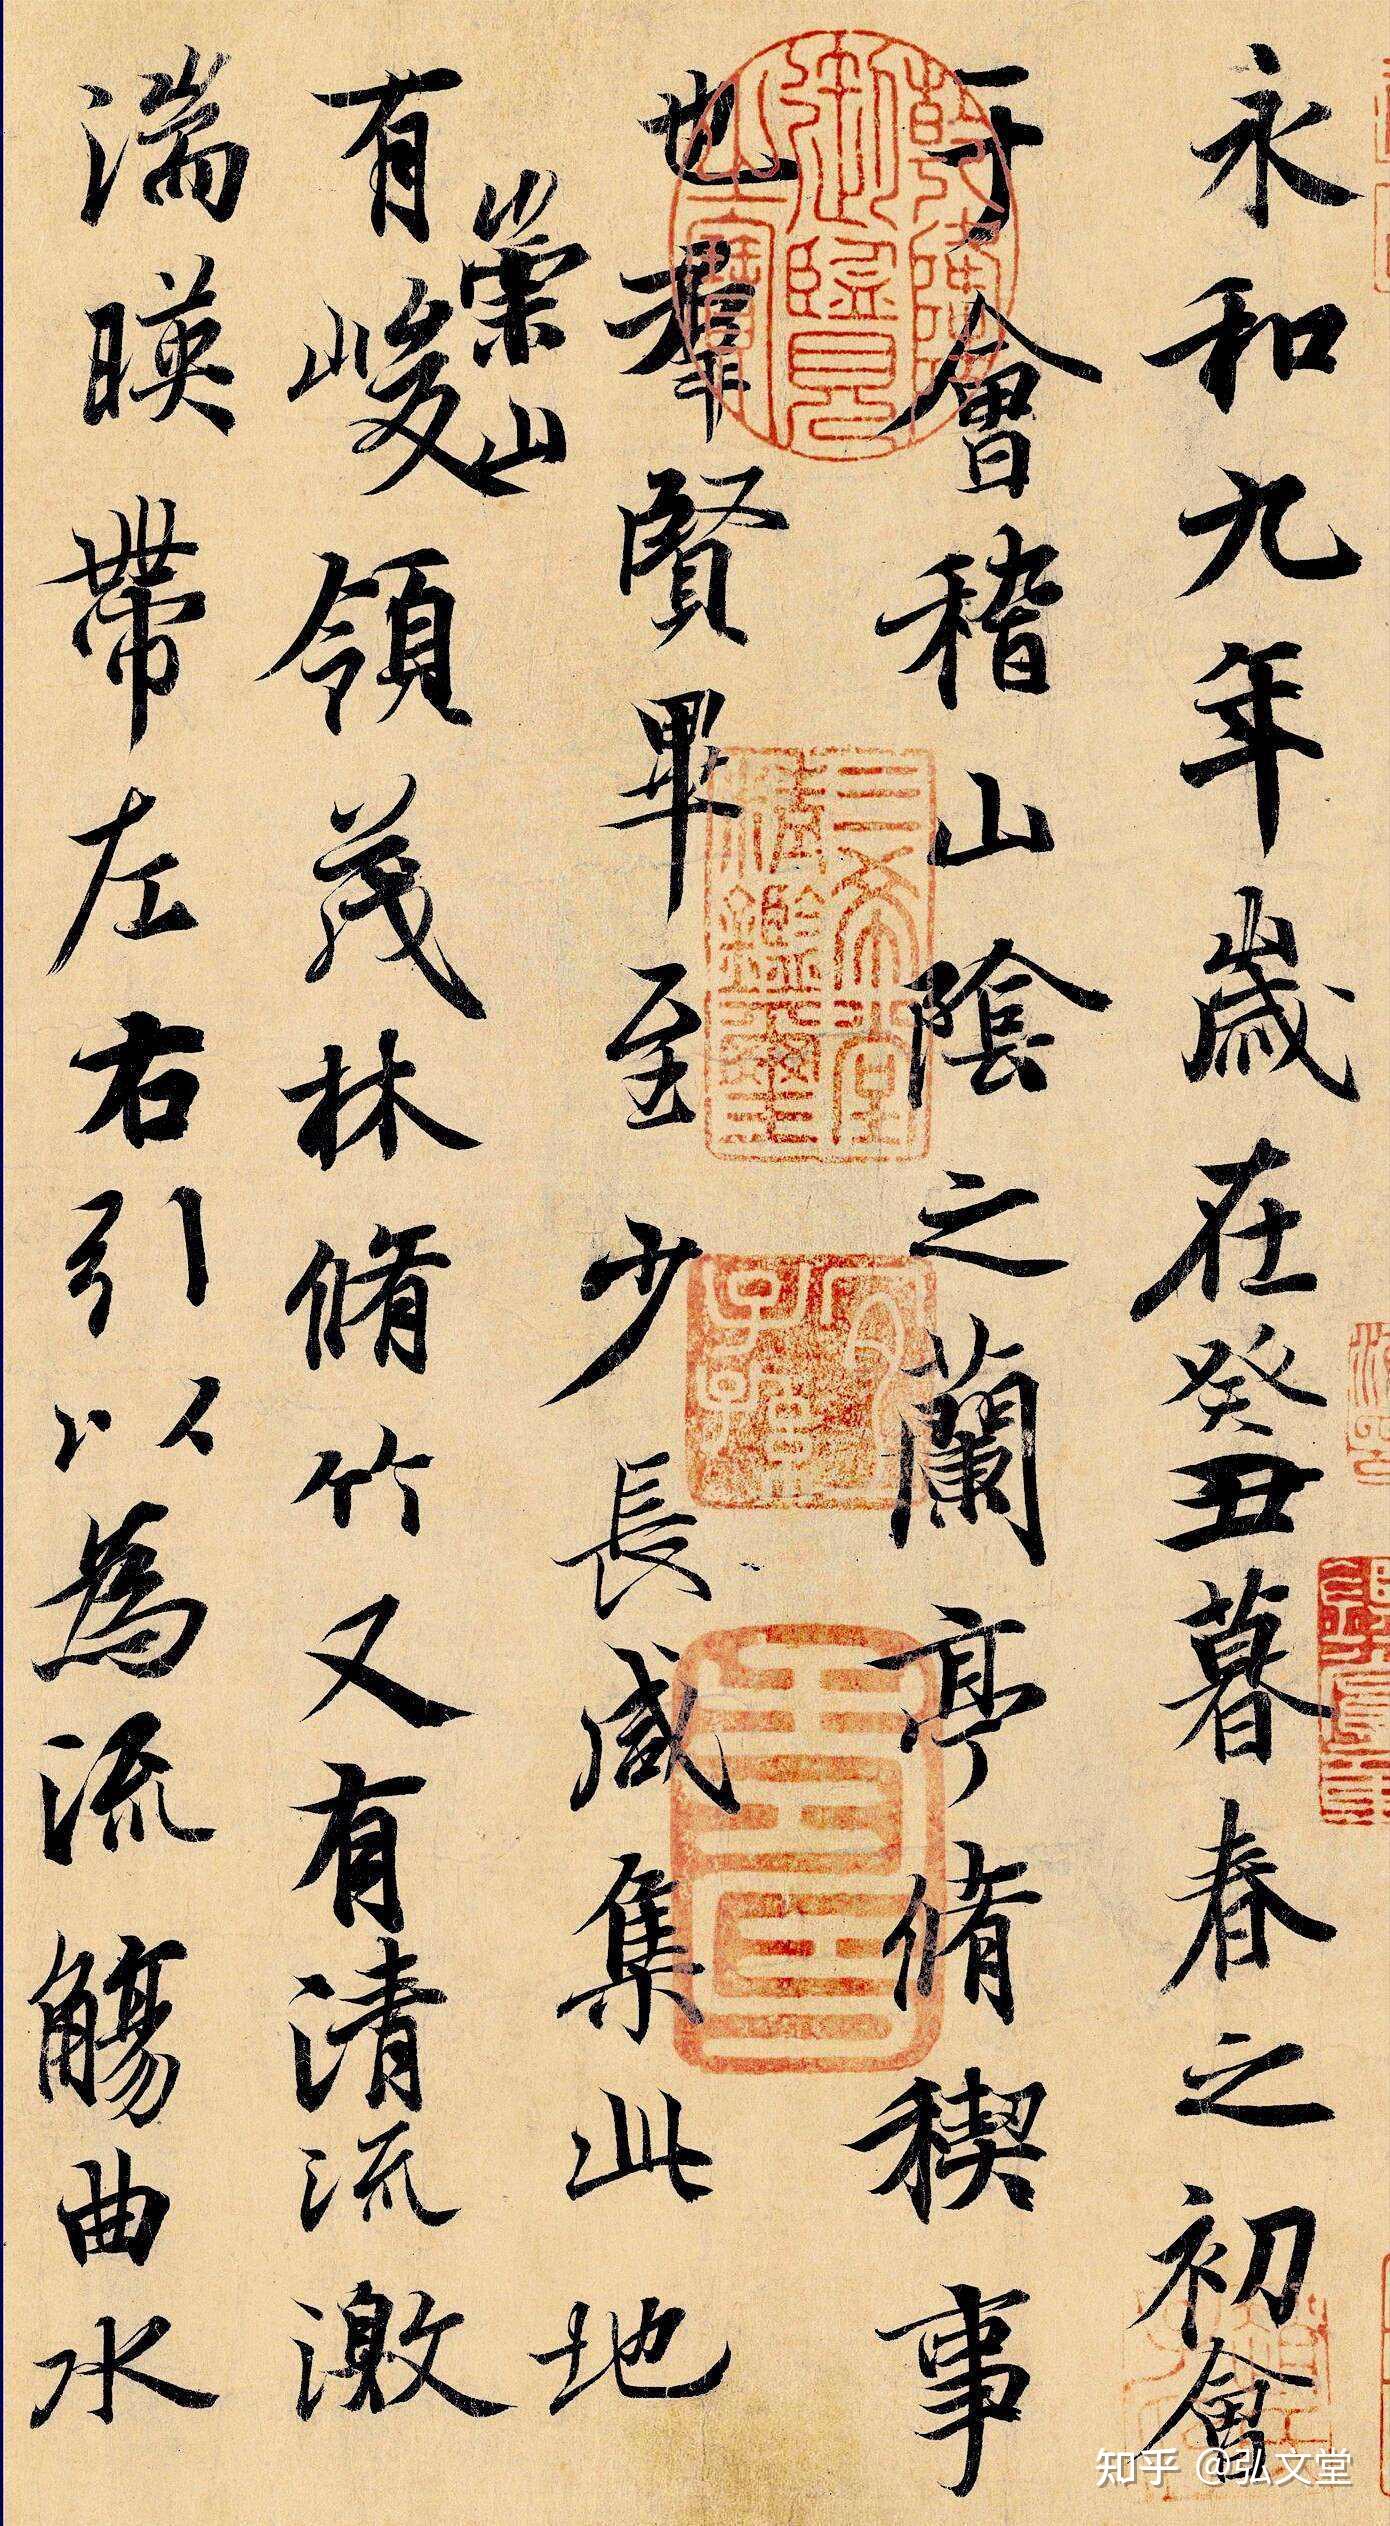 永和九年歲在癸丑暮春之初會
于會稽山陰之蘭亭脩稧事
也羣賢畢至少長咸集此地
崇山
有峻領茂林脩竹又有清流激
湍暎帶左右引以為流觴曲水
乾隆御覽之寶
三希堂精鑑璽
宜子孫
知乎 @弘文堂